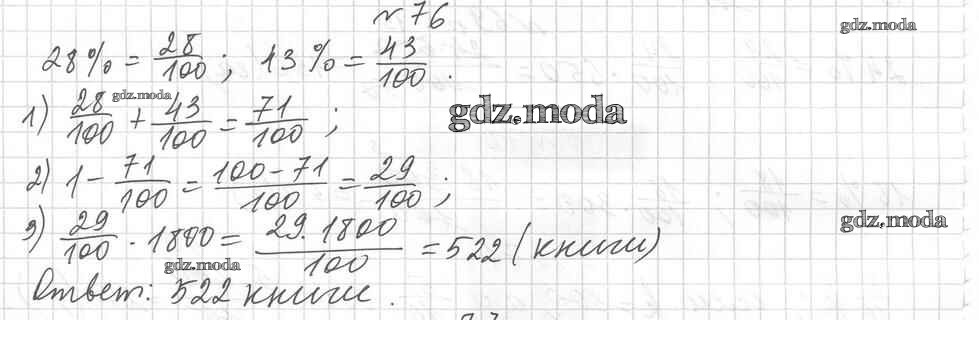 № 76
gdz.moda
28% = 28/100 ; 43% = 43/100 .
gdz.moda
1) 28/100 + 43/100 = 71/100 ;
gdz.moda
2) 1 - 71/100 = 100-71/100 = 29/100 ;
3) 29/100 · 1800 = 29·1800/100 = 522 (книги)
gdz.moda
gdz.moda
Ответ: 522 книги .